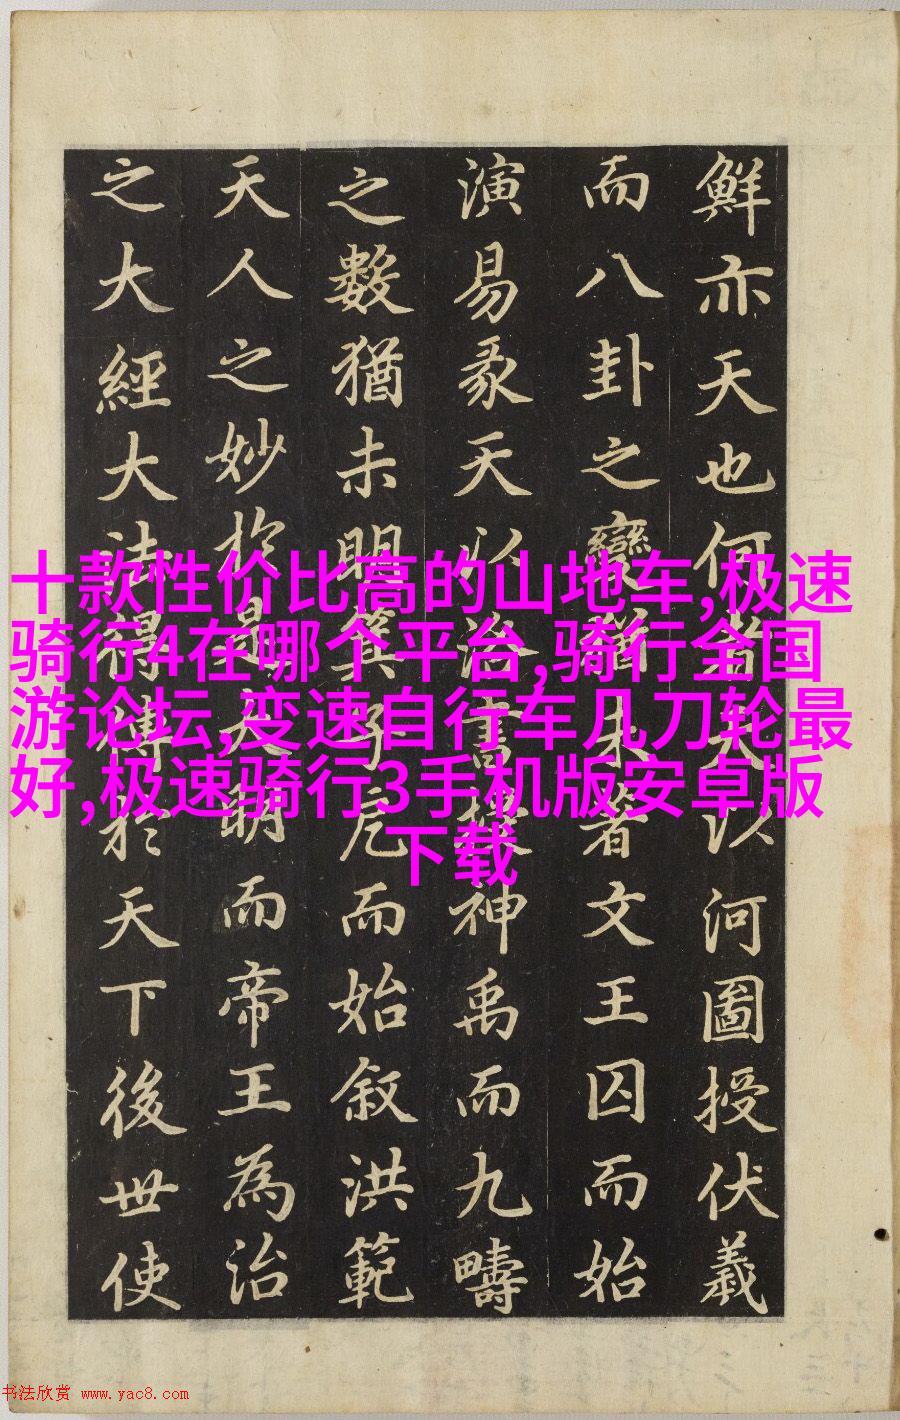 鮮亦天也何者天以河圖授伏羲
而八卦之變猶未著文王囚而始
演易彖天以洛書授神禹而九疇
之數猶未明箕子厄而始叙洪範
天人之妙於是大明而帝王為治
之大經大法得傳於天下後世使
十款性价比高的山地车,极速
骑行4在哪个平台,骑行全国
游论坛,变速自行车几刀轮最
好,极速骑行3手机版安卓版
下载
书法欣赏 www.yac8.com